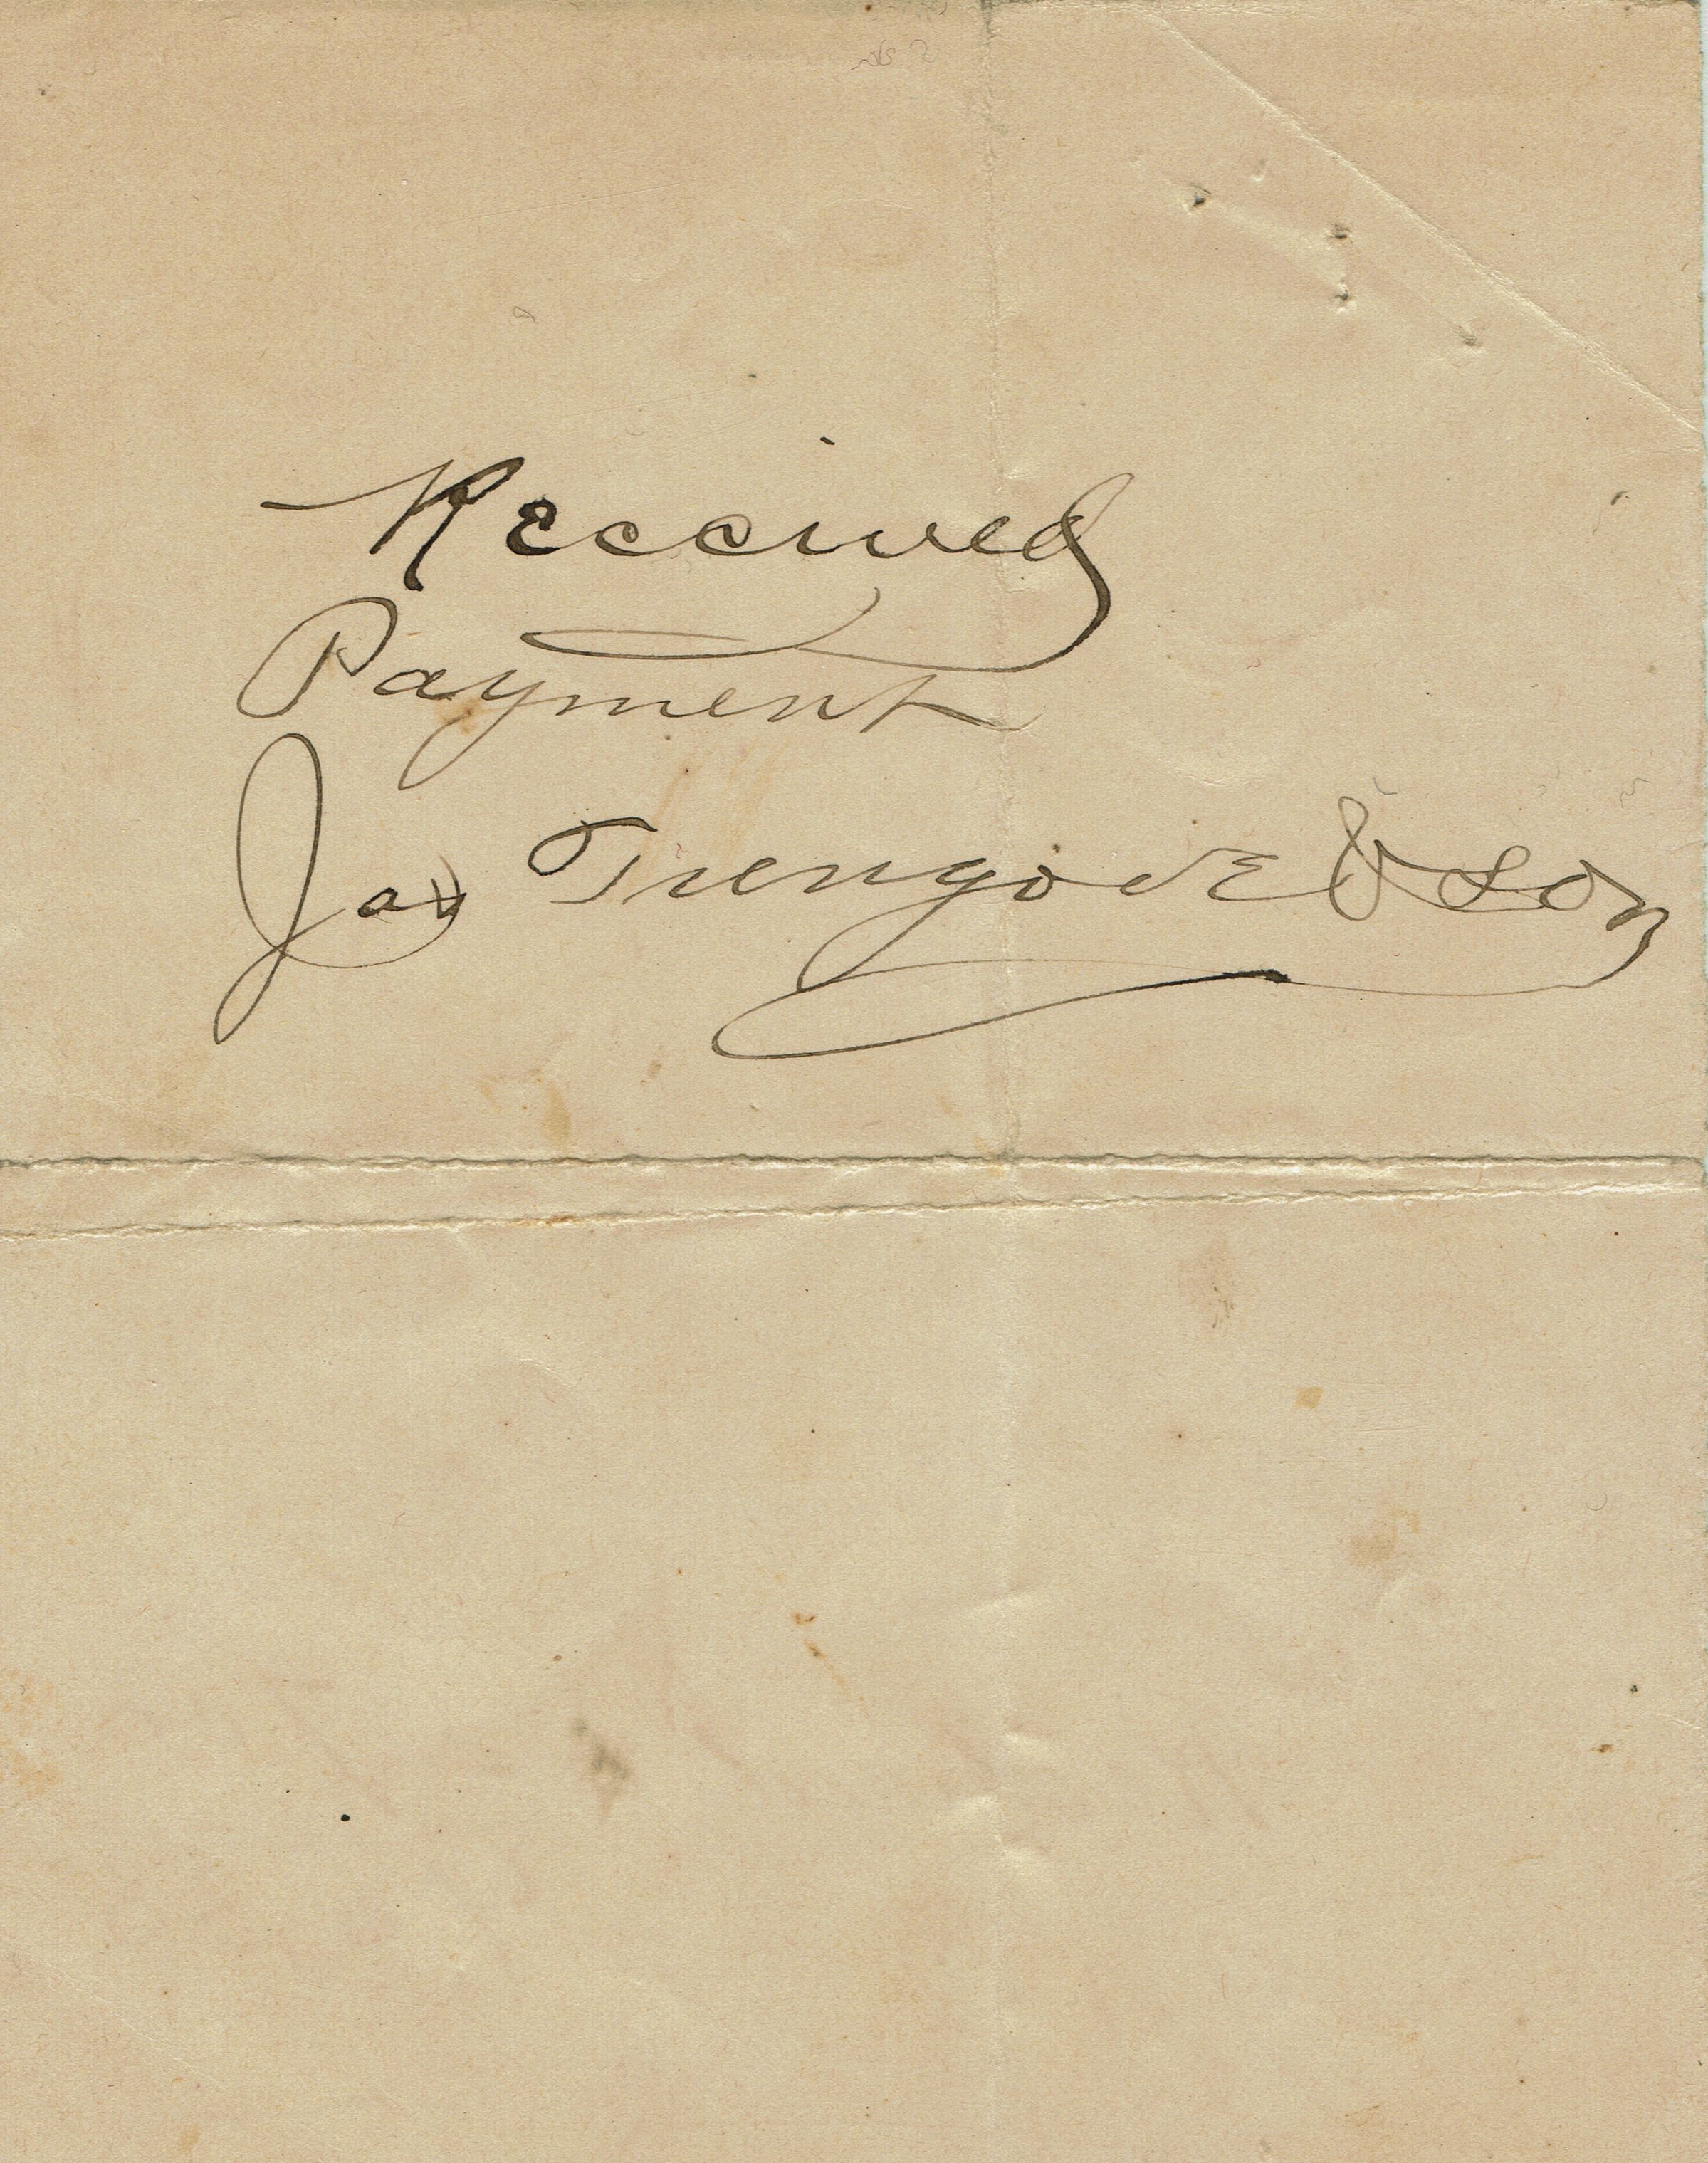 Received
Payment
Jas Trengove & Son